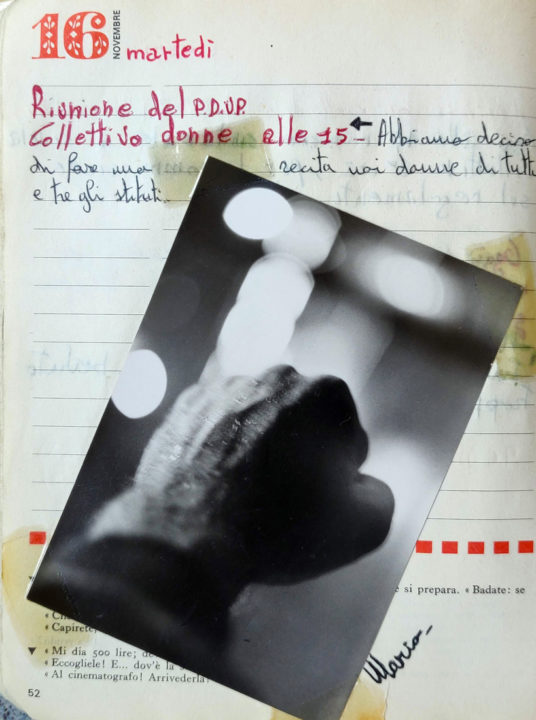 16
NOVEMBRE
martedì
Riunione del P.D.U.P.
Collettivo donne alle 15 ← - Abbiamo deciso
di fare una recita noi donne di tutti
e tre gli istituti.
e si prepara. « Badate: se
« Capirete,
▼ « Mi dia 500 lire; de
« Eccogliele! E... dov'è la s
« Al cinematografo! Arrivederla
52
Mario-